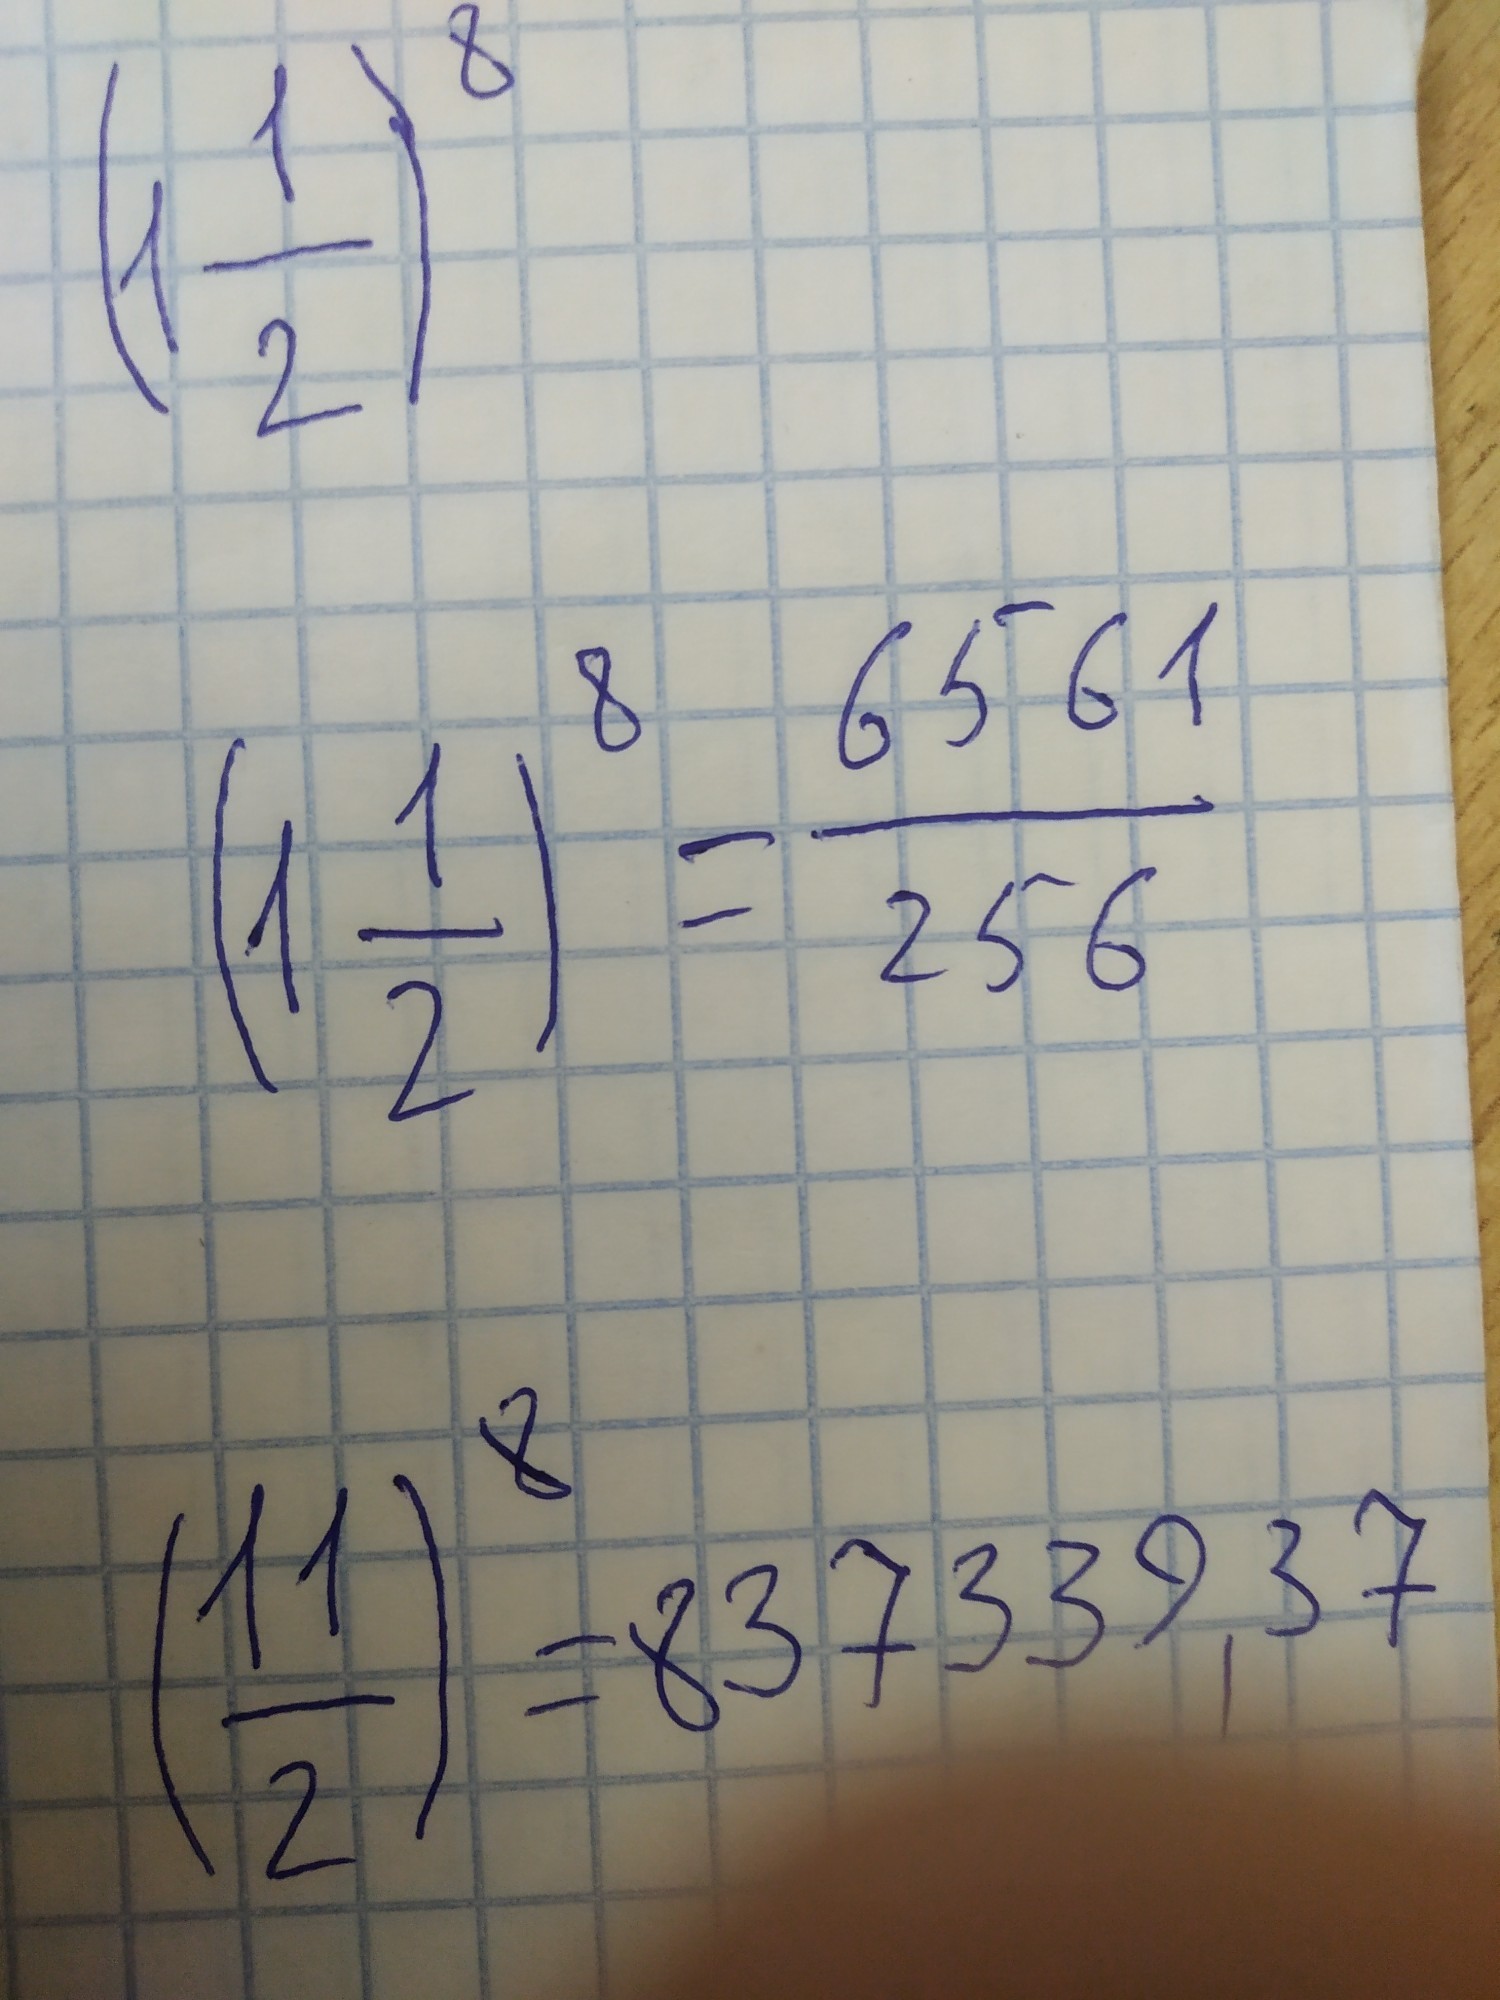 (1 1/2)^8
(1 1/2)^8 = 6561/256
(11/2)^8 = 837339,37